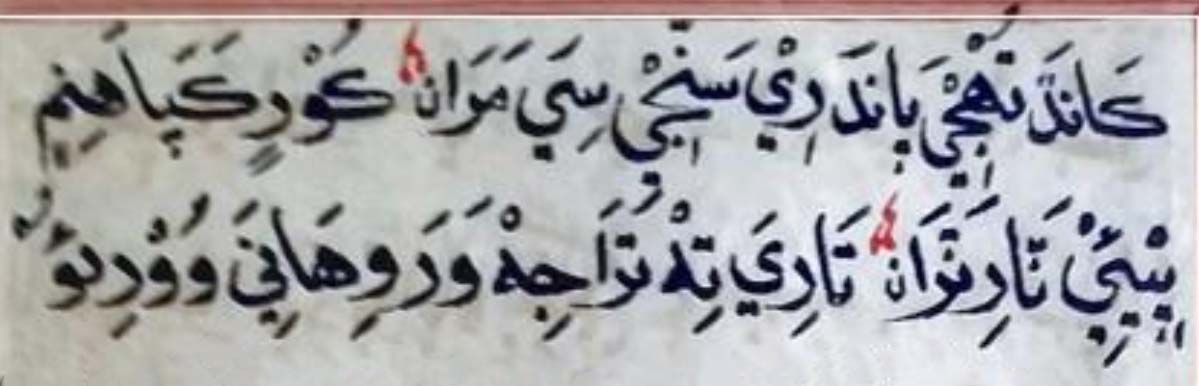 كَانَڌَ تُهْجِيْ پانَدَرِيْ سَنّجِيْ سِيَ مَرَانْ كُوْرِ كَپاَهَنِمِ
پِيْئِيْ تَارِ تَرَانْ تَارِيَ تِهْ تَرَا جِهْ وَرَ وِهَانِيَ وُوْرِئو